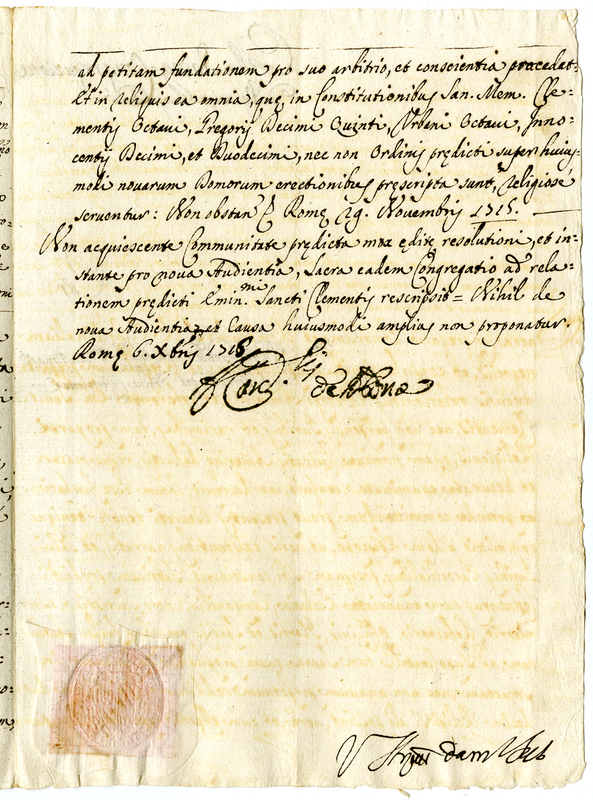 ad petitam fundationem pro suo arbitrio, et conscientia procedat:
Et in reliquis ea omnia, quę in Constitutionibus San. Mem. Cle=
mentis Octavi, Gregorij Decimi Quinti, Urbani Octavi, Inno=
centij Decimi, et Duodecimi, nec non Ordinis prędicti super huius=
modi novarum Domorum erectionibus pręscripta sunt, religiosè
serventur: Non obstan. Romę 29. Novembris 1715.
Non acquiescente Communitate prędicta mox editę resolutioni, et in=
stante pro nova Studientia, Sacra eadem Congregatio ad rela=
tionem prędicti Emin.mi Sancti Clementis rescripsit = Nihil de
nova Studientia, et Causa huiusmodi amplius non proponatur.
Romę 6. Xbris 1716
Card.